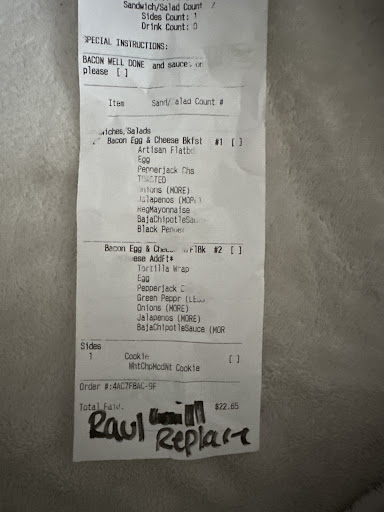 Sandwich/Salad Count
Sides Count: 1
Drink Count: 0
SPECIAL INSTRUCTIONS:
BACON WELL DONE and sauces on
please [ ]
Item Sand/Salad Count #
wiches/Salads
Bacon Egg & Cheese Bkfst #1 [ ]
Artisan Flatb
Egg
Pepperjack Chs
TOASTED
Onions (MORE)
Jalapenos (MORE)
RegMayonnaise
BajaChipotleSauc
Black Pepper
Bacon Egg & Chee FlBk #2 [ ]
eese AddFt*
Tortilla Wrap
Egg
Pepperjack C
Green Peppr (LESS
Onions (MORE)
Jalapenos (MORE)
BajaChipotleSauce (MOR
Sides
1 Cookie [ ]
WhtChpMcdNt Cookie
Order #:4AC7F8AC-9F
Total Paid. $22.65
Raul
Replace